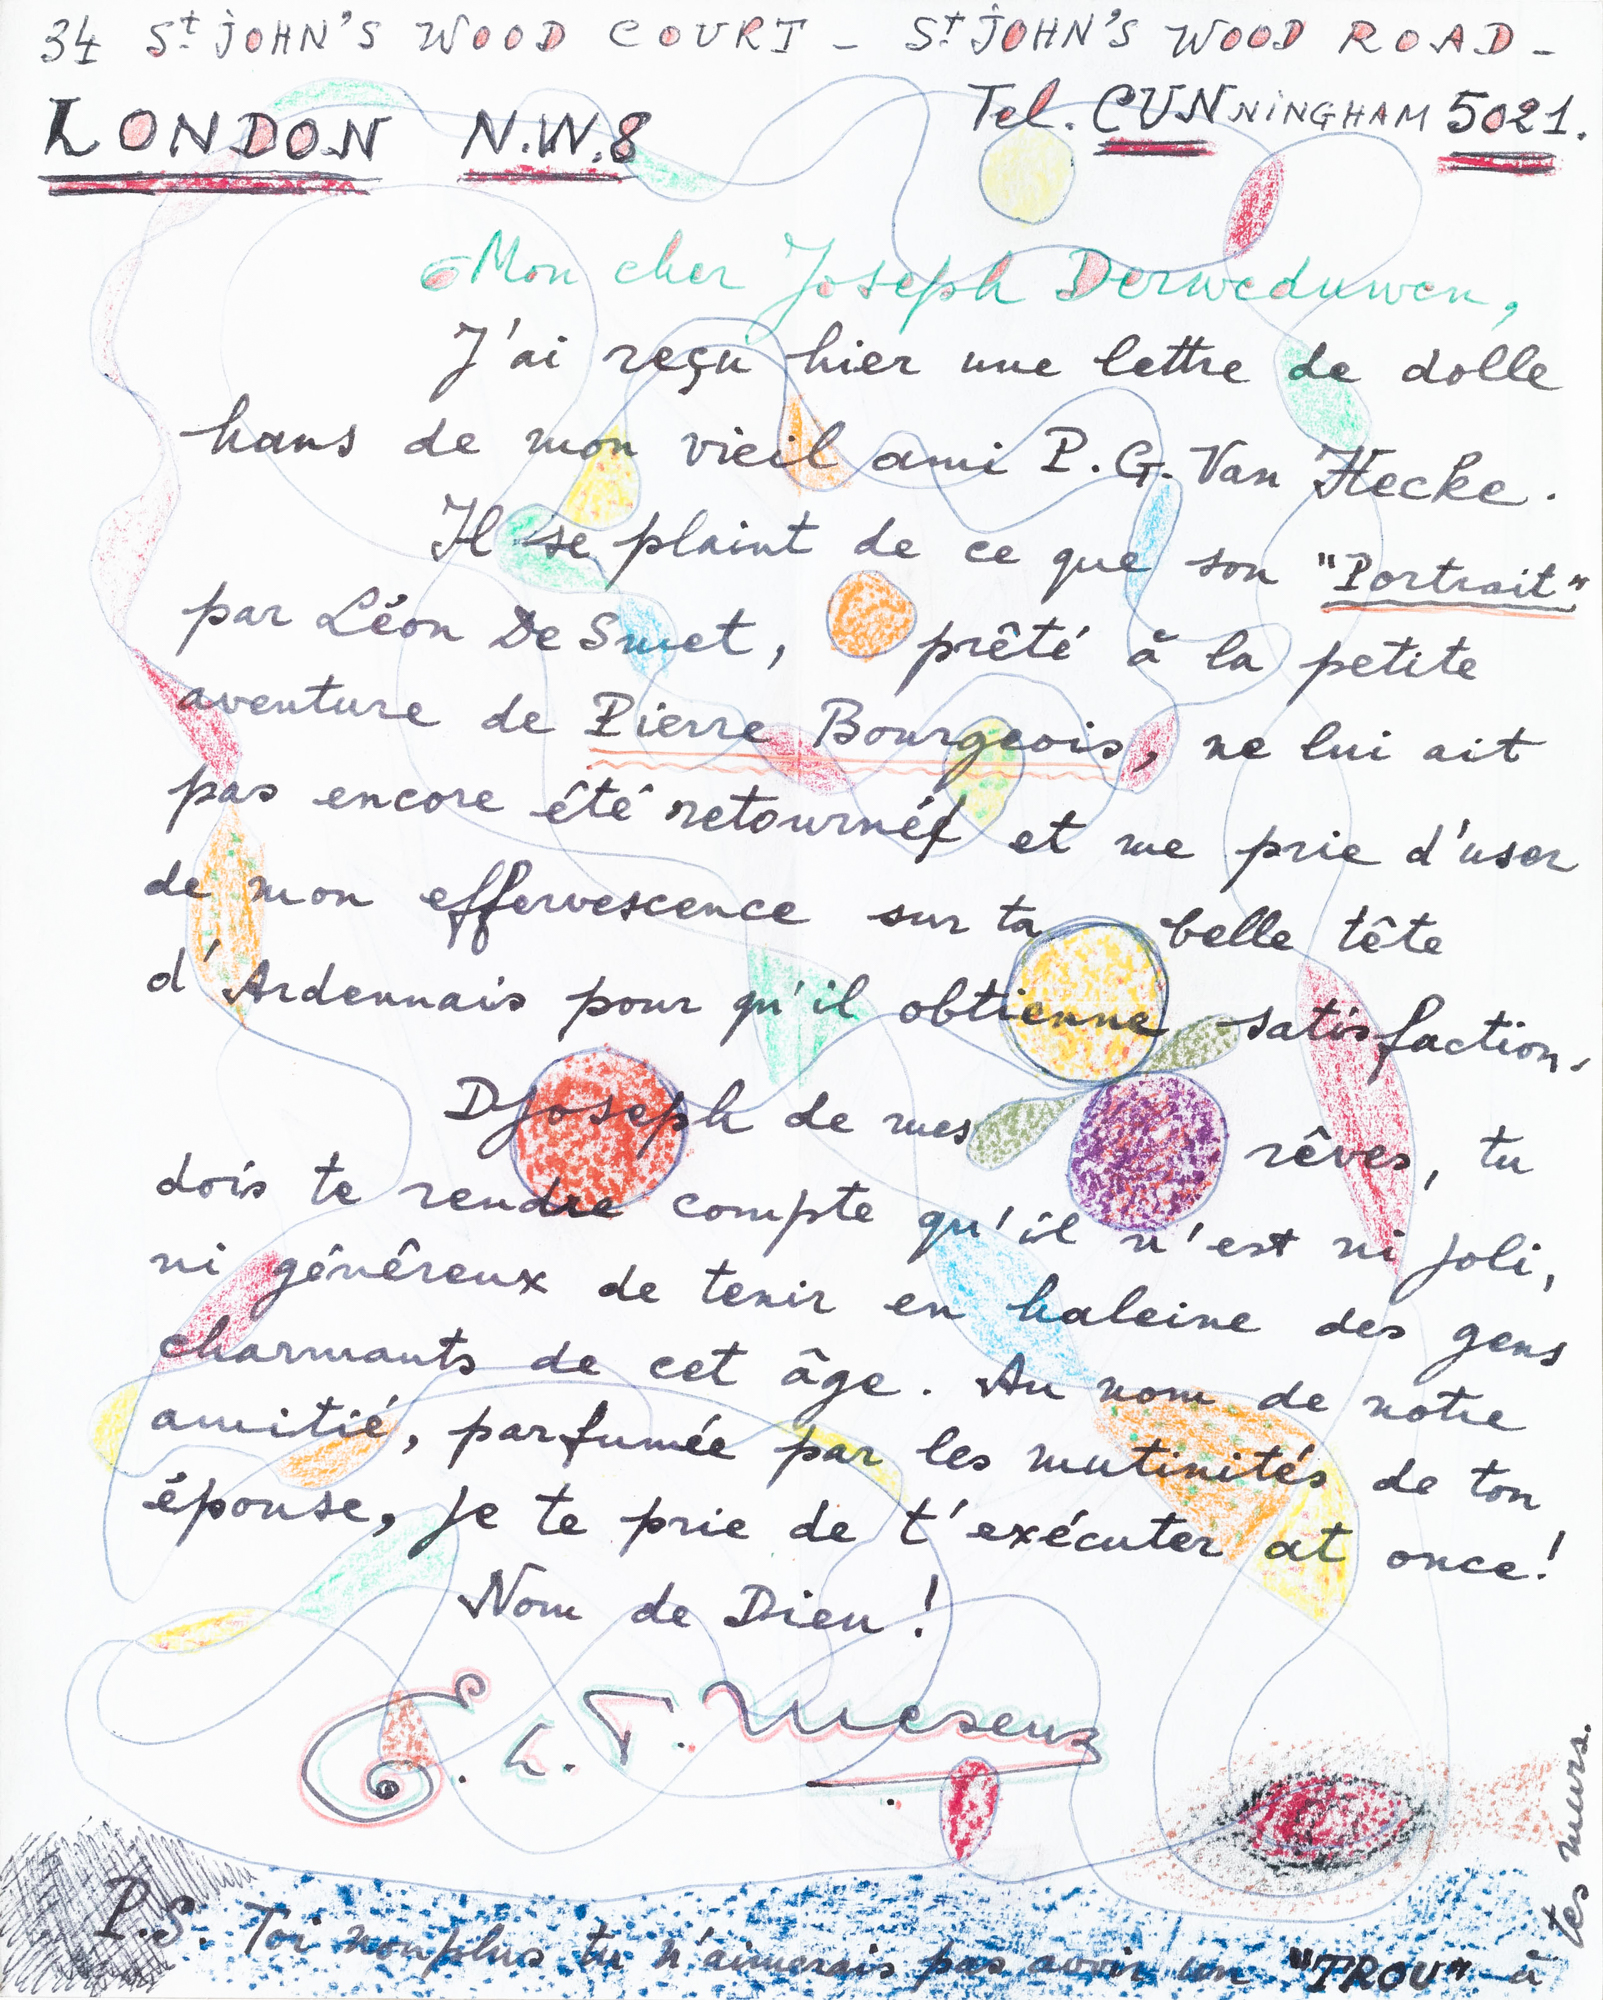 34 St JOHN'S WOOD COURT - St JOHN'S WOOD ROAD -
LONDON N.W.8 Tel. CUNNINGHAM 5021.
Mon cher Joseph Derweduwen,
J'ai reçu hier une lettre de dolle
hans de mon vieil ami P.G. Van Hecke.
Il se plaint de ce que son "Portrait"
par Léon De Smet, prêté à la petite
aventure de Pierre Bourgeois, ne lui ait
pas encore été retourné et me prie d'user
de mon effervescence sur ta belle tête
d'Ardennais pour qu'il obtienne satisfaction.
Djoseph de mes rêves, tu
dois te rendre compte qu'il n'est ni joli,
ni généreux de tenir en haleine des gens
charmants de cet âge. Au nom de notre
amitié, parfumée par les mutinités de ton
épouse, je te prie de t'exécuter at once!
Nom de Dieu!
E.L.T. Mesens
P.S. Toi non plus tu n'aimerais pas avoir un "TROU" à
tes murs.